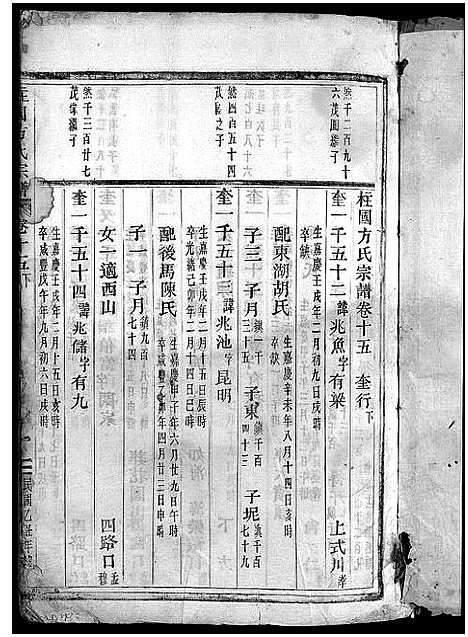 柱國方氏宗譜卷十五 奎行下
然千二百九十六茂園繼子
奎一千五十二 諱兆魚字有梁 上弍川孝
生嘉慶壬戌年二月初六日戌時
卒缺
配東湖胡氏 生嘉慶辛未年八月十四日亥時
卒缺
子三 子月鎮一千三十五 子東鎮千百四十三 子坭鎮千百七十九
然四百五十四茂之子
奎一千五十三 諱兆池字昆明
生嘉慶壬戌年二月十五日辰時
卒光緒己卯年二月十四日巳時
配後馬陳氏 生嘉慶庚午年六月廿九日午時
卒咸豐年四月廿三日申時
子一 子月鎮九百七十四
女一適西山 四路口孟穆
然千三百廿七茂常繼子
奎一千五十四 諱兆儲字有九 四路口
生嘉慶壬戌年二月十五日亥時
卒咸豐戊午年九月初六日戌時
柱國方氏宗譜 卷十五下
民國乙